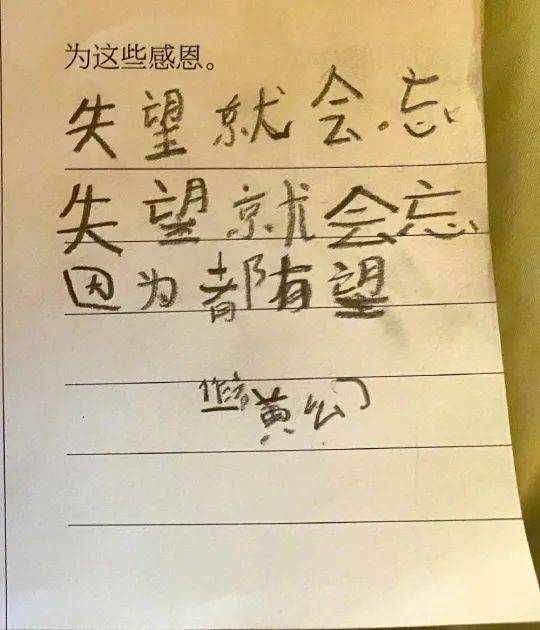 为这些感恩。
失望就会忘
失望就会忘
因为都有望
作者黄